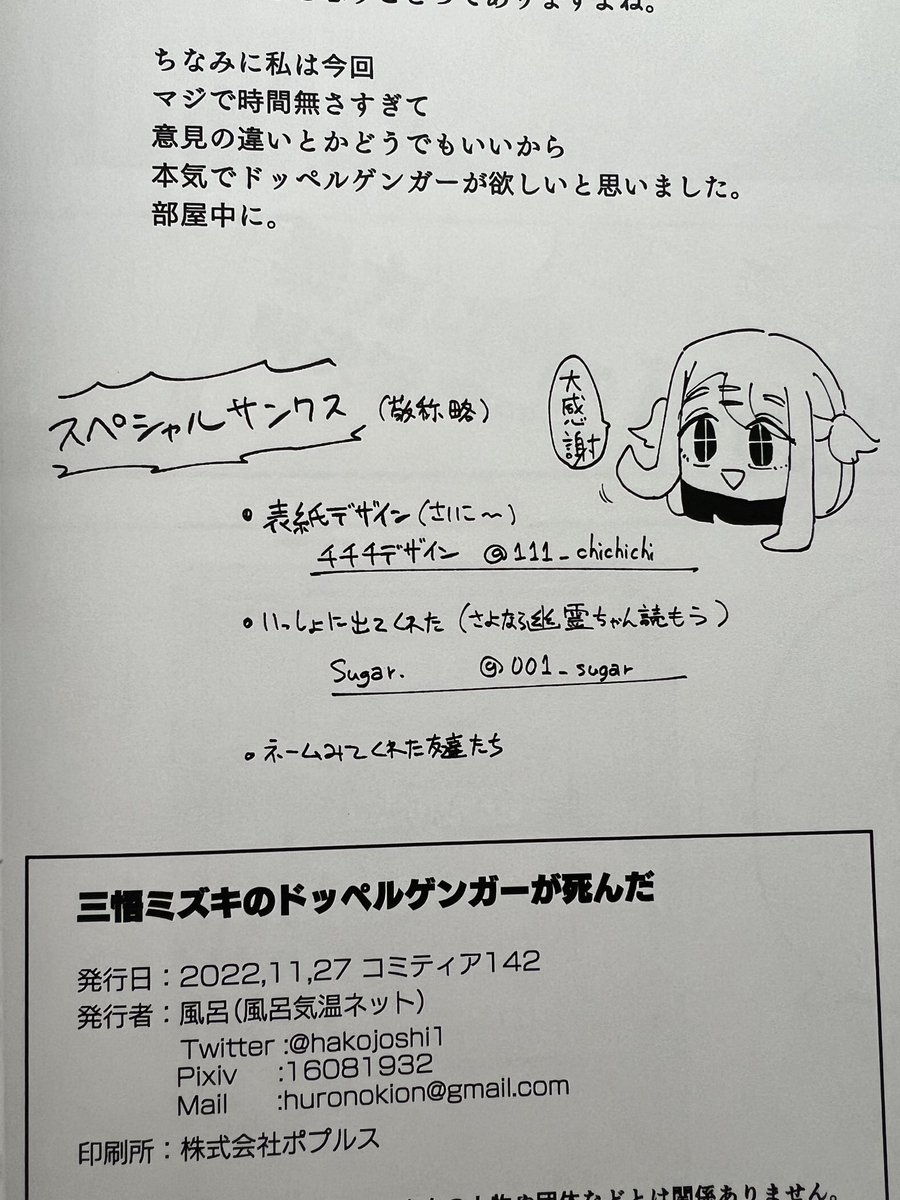 てありますよね。
ちなみに私は今回
マジで時間無さすぎて
意見の違いとかどうでもいいから
本気でドッペルゲンガーが欲しいと思いました。
部屋中に。
スペシャルサンクス (敬称略)
大感謝
• 表紙デザイン (さいこ〜)
チチチデザイン @111_chichichi
• いっしょに出てくれた (さよなら幽霊ちゃん読もう)
Sugar. @001_sugar
• ネームみてくれた友達たち
三悟ミズキのドッペルゲンガーが死んだ
発行日：2022,11,27 コミティア142
発行者：風呂(風呂気温ネット)
Twitter :@hakojoshi1
Pixiv :16081932
Mail :huronokion@gmail.com
印刷所：株式会社ポプルス
団体などとは関係ありません。